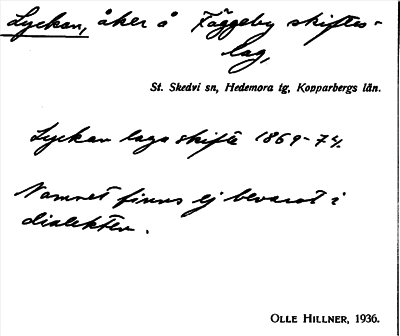 Lyckan, åker å Fäggeby skiftes-
lag,
St. Skedvi sn, Hedemora tg, Kopparbergs län.
Lyckan laga skifte 1869-74.
Namnet finns ej bevarat i
dialekten.
OLLE HILLNER, 1936.